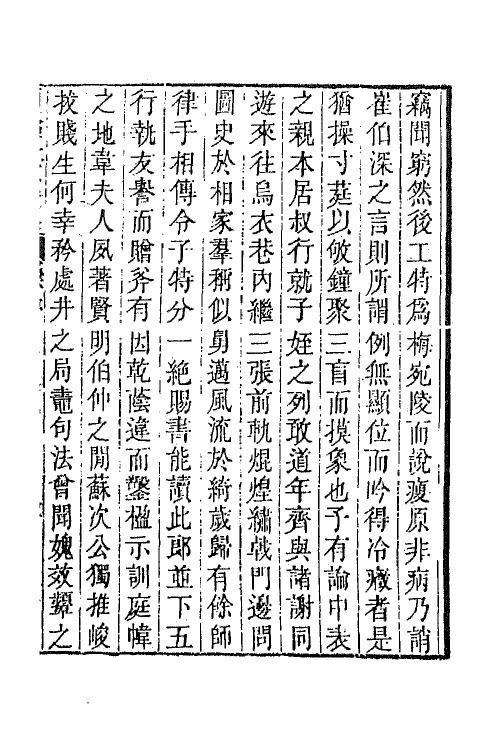 竊聞窮然後工特爲梅宛陵而說瘦原非病乃誚
崔伯深之言則所謂例無顯位而吟得冷癡者是
猶操寸莛以敂鐘聚三盲而摸象也予有論中表
之親本居叔行就子姪之列敢道年齊與諸謝同
遊來往烏衣巷內繼三張前軌焜煌繡㦸門邊問
圖史於相家羣稱似舅邁風流於綺歲歸有餘師
律手相傳令子特分一絶賜書能讀此郎並下五
行執友譽而贈斧有因乾蔭違而鑿楹示訓庭幃
之地韋夫人夙著賢明伯仲之閒蘇次公獨推峻
拔賤生何幸矜處井之局鼃句法曾聞媿效顰之